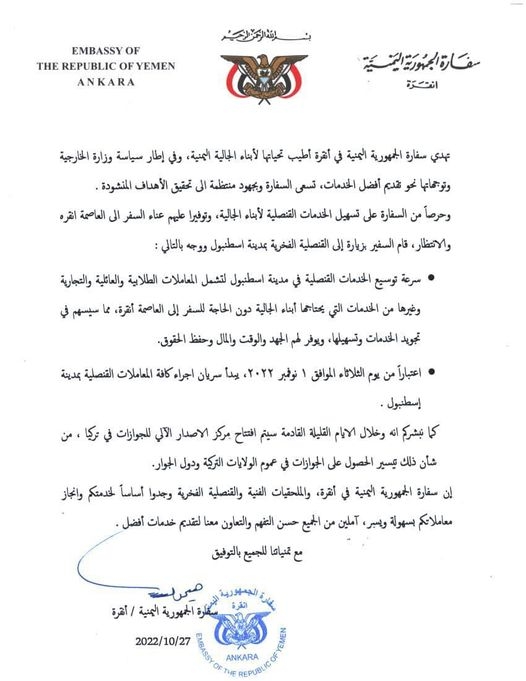 بسم الله الرحمن الرحيم
EMBASSY OF
THE REPUBLIC OF YEMEN
ANKARA
سفارة الجمهورية اليمنية
انقرة
تهدي سفارة الجمهورية اليمنية في أنقرة أطيب تحياتها لأبناء الجالية اليمنية، وفي إطار سياسة وزارة الخارجية
وتوجهاتها نحو تقديم أفضل الخدمات، تسعى السفارة وبجهود منتظمة الى تحقيق الأهداف المنشودة .
وحرصاً من السفارة على تسهيل الخدمات القنصلية لأبناء الجالية، وتوفيرا عليهم عناء السفر الى العاصمة انقره
والانتظار، قام السفير بزيارة إلى القنصلية الفخرية بمدينة اسطنبول ووجه بالتالي :
• سرعة توسيع الخدمات القنصلية في مدينة اسطنبول لتشمل المعاملات الطلابية والعائلية والتجارية
وغيرها من الخدمات التي يحتاجها أبناء الجالية دون الحاجة للسفر إلى العاصمة أنقرة، مما سيسهم في
تجويد الخدمات وتسهيلها، ويوفر لهم الجهد والوقت والمال وحفظ الحقوق.
• اعتباراً من يوم الثلاثاء الموافق ١ نوفمبر ٢٠٢٢، يبدأ سريان اجراء كافة المعاملات القنصلية بمدينة
إسطنبول .
كما نبشركم انه وخلال الايام القليلة القادمة سيتم افتتاح مركز الاصدار الآلي للجوازات في تركيا ، من
شأن ذلك تيسير الحصول على الجوازات في عموم الولايات التركية ودول الجوار.
إن سفارة الجمهورية اليمنية في أنقرة، والملحقيات الفنية والقنصلية الفخرية وجدوا أساساً لخدمتكم وانجاز
معاملاتكم بسهولة ويسر، آملين من الجميع حسن التفهم والتعاون معنا لتقديم خدمات أفضل .
مع تمنياتنا للجميع بالتوفيق
سفارة الجمهورية اليمنية / أنقرة
2022/10/27
سفارة الجمهورية اليمنية
انقرة
ANKARA
EMBASSY OF THE REPUBLIC OF YEMEN